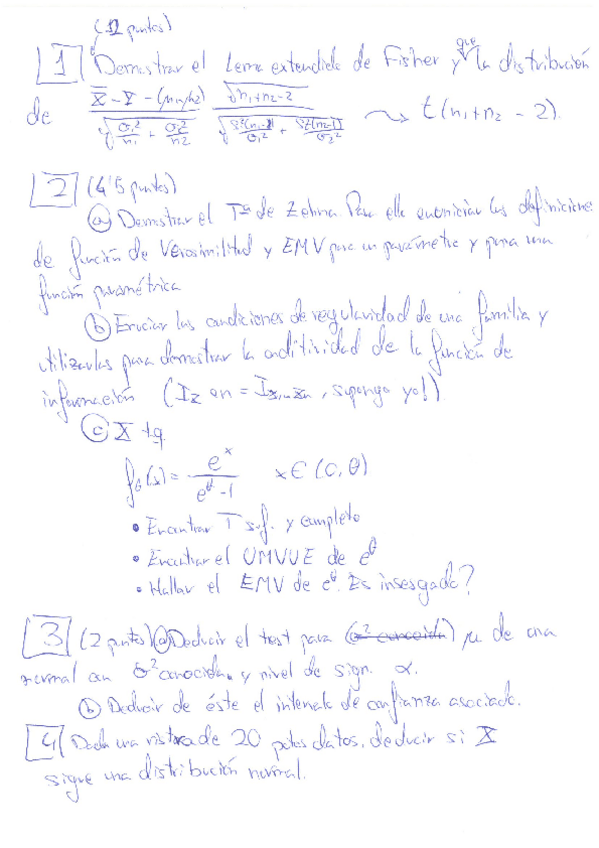 (12 puntos)
1 Demostrar el Lema extendido de Fisher y que la distribución
de X̄ - Ȳ - (μ1-μ2) / √(σ1²/n1 + σ2²/n2) · √(n1+n2-2) / √(S1²(n1-1)/σ1² + S2²(n2-1)/σ2²) ⇝ t(n1+n2 - 2).
2 (4'5 puntos)
(a) Demostrar el Tma de Zehna. Para ello enunciar las definiciones
de función de Verosimilitud y EMV para un parámetro y para una
función paramétrica
(b) Enunciar las condiciones de regularidad de una familia y
utilizarlas para demostrar la aditividad de la función de
información (I_x en = I_x1...xn, supongo yo!).
(c) X tq
fθ(x) = e^x / (e^θ - 1) x ∈ (0, θ)
• Encontrar T suf. y completo
• Encontrar el UMVUE de e^θ
• Hallar el EMV de e^θ. Es insesgado?
3 (2 puntos) (a) Deducir el test para (σ² conocida) μ de una
normal con σ² conocida y nivel de sign. α.
(b) Deducir de éste el intervalo de confianza asociado.
4 Dada una ristra de 20 datos, deducir si X
sigue una distribución normal.